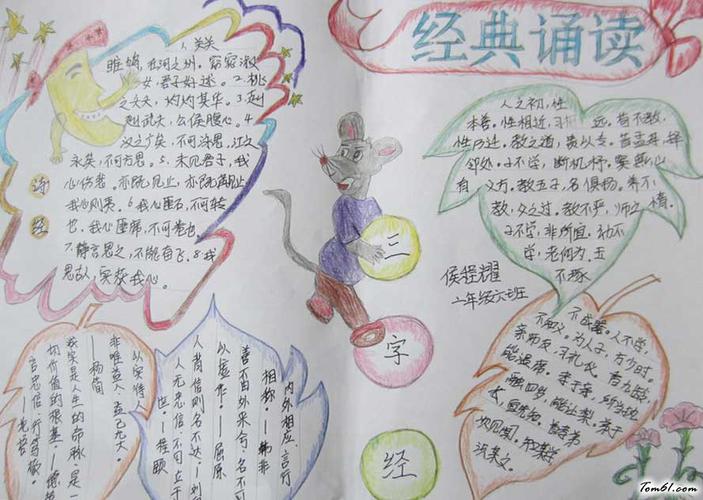 经典诵读
1.关关
雎鸠,在河之洲。窈窕淑
女,君子好逑。2.桃
之夭夭,灼灼其华。3.赳
赳武夫,公侯腹心。4.
汉之广矣,不可泳思。江之
永矣,不可方思。5.未见君子,我
心伤悲。亦既见止,亦既觏止
我心则夷。6.我心匪石,不可转
也。我心匪席,不可卷也
7.静言思之,不能奋飞。8.我
思古人,实获我心。
诗
经
人之初,性
本善。性相近,习相远。苟不教,
性乃迁。教之道,贵以专。昔孟母,择
邻处。子不学,断机杼。窦燕山
有义方。教五子,名俱扬。养不
教,父之过。教不严,师之惰。
子不学,非所宜。幼不
学,老何为。玉
不琢
三
字
经
侯程耀
二年级六班
不成器。人不学,
不知义。为人子,方少时。
亲师友,习礼仪。香九龄
能温席。孝于亲,所当执
融四岁,能让梨。弟于
长,宜先知。首孝弟
次见闻。知某数
识某文。
内外相应,言行
相称。--韩非
善不由外来兮,名不可
以虚作。--屈原
人背信则名不达。--刘
人无忠信不可立于
也--程颐
以实待
非唯益人,益己尤大。
--杨简
诚实是人生的命脉,是一
切价值的根基--德莱
言忠信,行笃敬。